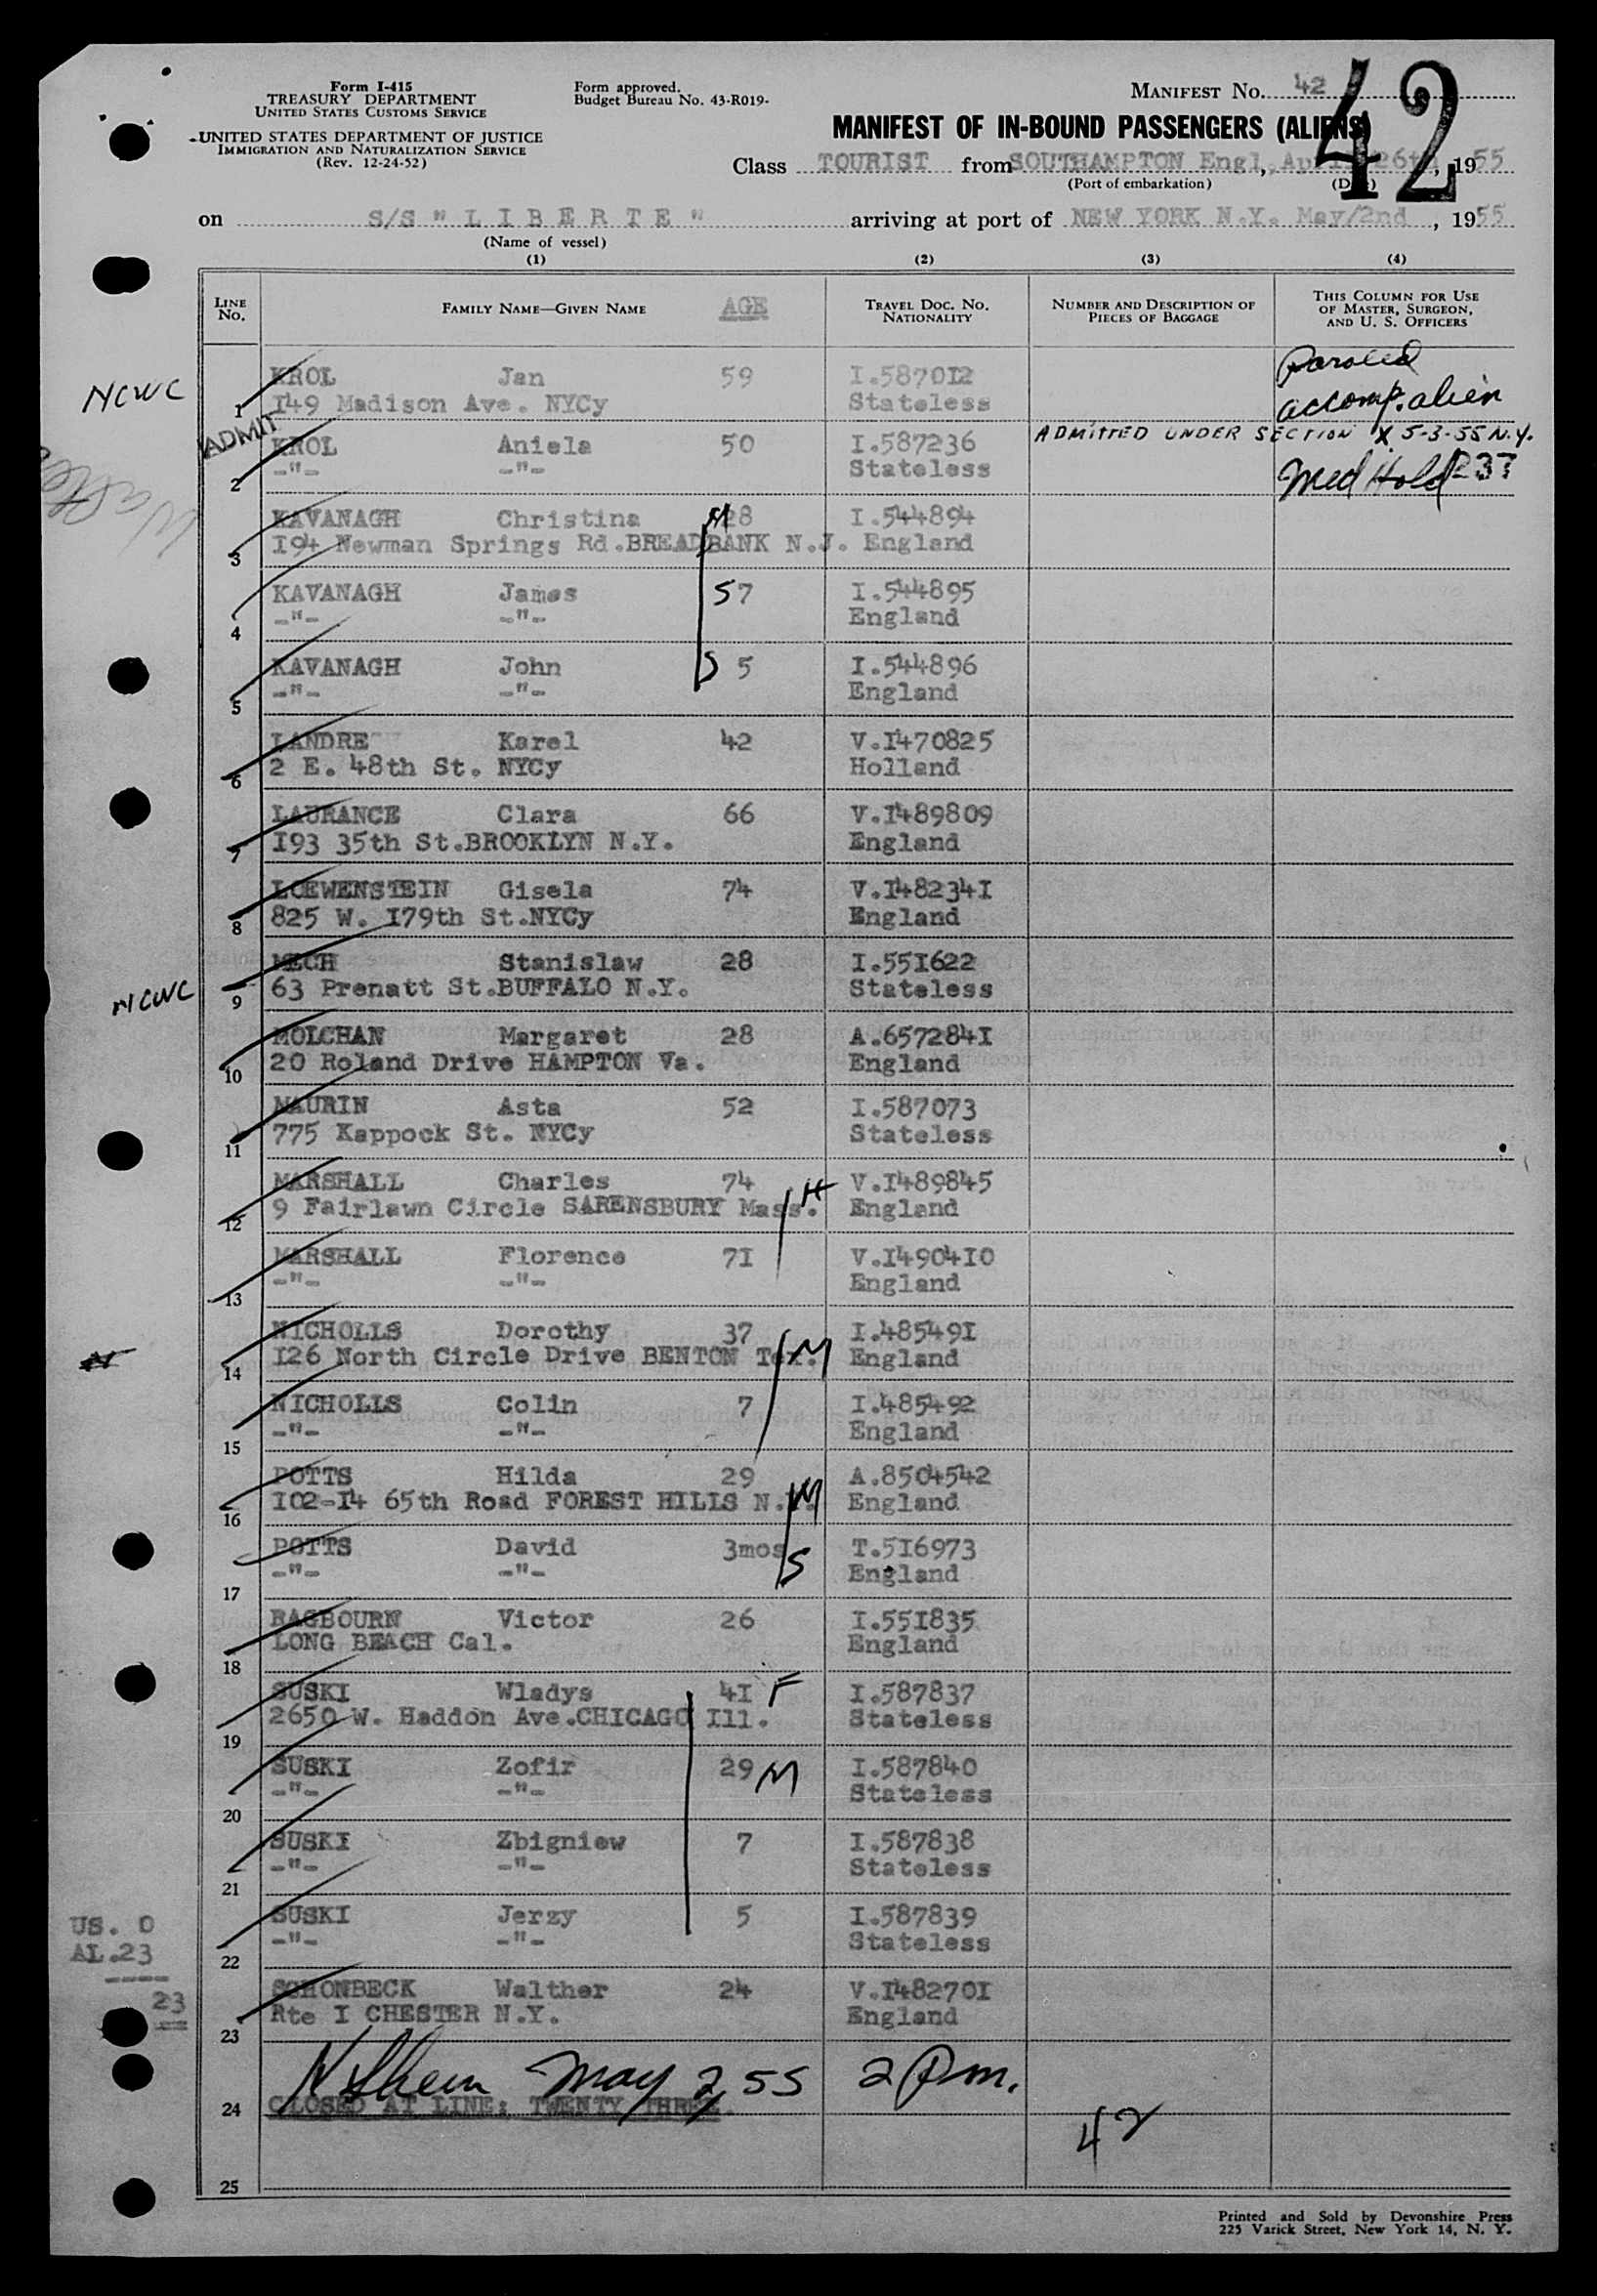 Form I-415
TREASURY DEPARTMENT
UNITED STATES CUSTOMS SERVICE
UNITED STATES DEPARTMENT OF JUSTICE
IMMIGRATION AND NATURALIZATION SERVICE
(Rev. 12-24-52)
Form approved.
Budget Bureau No. 43-R019-
MANIFEST NO. 42
42
MANIFEST OF IN-BOUND PASSENGERS (ALIENS)
Class TOURIST from SOUTHAMPTON Engl., April 26th, 1955
(Port of embarkation) (Date)
on S/S " L I B E R T E " arriving at port of NEW YORK N.Y. May/2nd, 1955
(Name of vessel)
(1) (2) (3) (4)
LINE NO. FAMILY NAME—GIVEN NAME AGE TRAVEL DOC. NO. NATIONALITY NUMBER AND DESCRIPTION OF PIECES OF BAGGAGE THIS COLUMN FOR USE OF MASTER, SURGEON, AND U. S. OFFICERS
KROL Jan 59 I.587012 Paroled
NCWC 1 149 Madison Ave. NYCy Stateless accomp. alien
ADMIT KROL Aniela 50 I.587236 ADMITTED UNDER SECTION X 5-3-55 N.Y.
2 -"- -"- Stateless Med Hold 237
KAVANAGH Christina M 28 I.544894
3 194 Newman Springs Rd.BREADBANK N.J. England
KAVANAGH James S 7 I.544895
4 -"- -"- England
KAVANAGH John S 5 I.544896
5 -"- -"- England
LANDRE Karel 42 V.1470825
6 2 E. 48th St. NYCy Holland
LAURANCE Clara 66 V.1489809
7 193 35th St.BROOKLYN N.Y. England
LOEWENSTEIN Gisela 74 V.1482341
8 825 W. 179th St.NYCy England
MECH Stanislaw 28 I.551622
NCWC 9 63 Prenatt St.BUFFALO N.Y. Stateless
MOLCHAN Margaret 28 A.6572841
10 20 Roland Drive HAMPTON Va. England
MAURIN Asta 52 I.587073
11 775 Kappock St. NYCy Stateless
MARSHALL Charles 74 H V.1489845
12 9 Fairlawn Circle SARENSBURY Mass. England
MARSHALL Florence 71 V.1490410
13 -"- -"- England
NICHOLLS Dorothy 37 I.485491
14 126 North Circle Drive BENTON Tex. M England
NICHOLLS Colin 7 I.485492
15 -"- -"- England
POTTS Hilda 29 A.8504542
16 102-14 65th Road FOREST HILLS N.Y. M England
POTTS David 3mos S T.516973
17 -"- -"- England
RAGBOURN Victor 26 I.551835
18 LONG BEACH Cal. England
SUSKI Wladys 41 F I.587837
19 2650 W. Haddon Ave.CHICAGO Ill. Stateless
SUSKI Zofir 29 M I.587840
20 -"- -"- Stateless
SUSKI Zbigniew 7 I.587838
21 -"- -"- Stateless
US. 0
AL.23
----
23
==
SUSKI Jerzy 5 I.587839
22 -"- -"- Stateless
SCHONBECK Walther 24 V.1482701
23 Rte 1 CHESTER N.Y. England
May 2, 55 2 Pm.
24 CLOSED AT LINE: TWENTY THREE.
42
25
Printed and Sold by Devonshire Press
225 Varick Street, New York 14, N. Y.